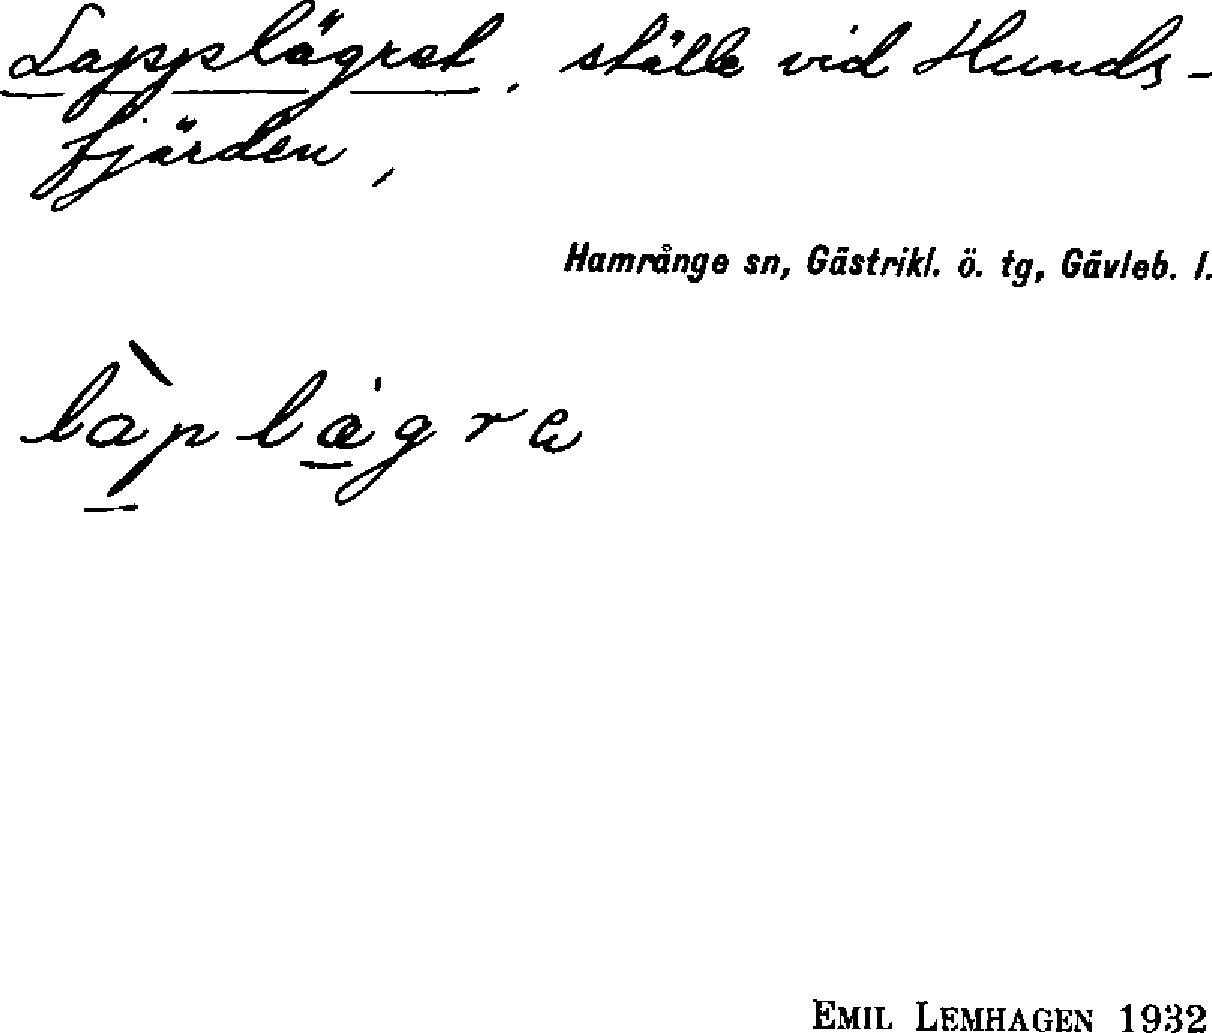 Lapplägret, ställe vid Hunds-
fjärden,
Hamrånge sn, Gästrikl. ö. tg, Gävleb. l.
làplægre
EMIL LEMHAGEN 1932